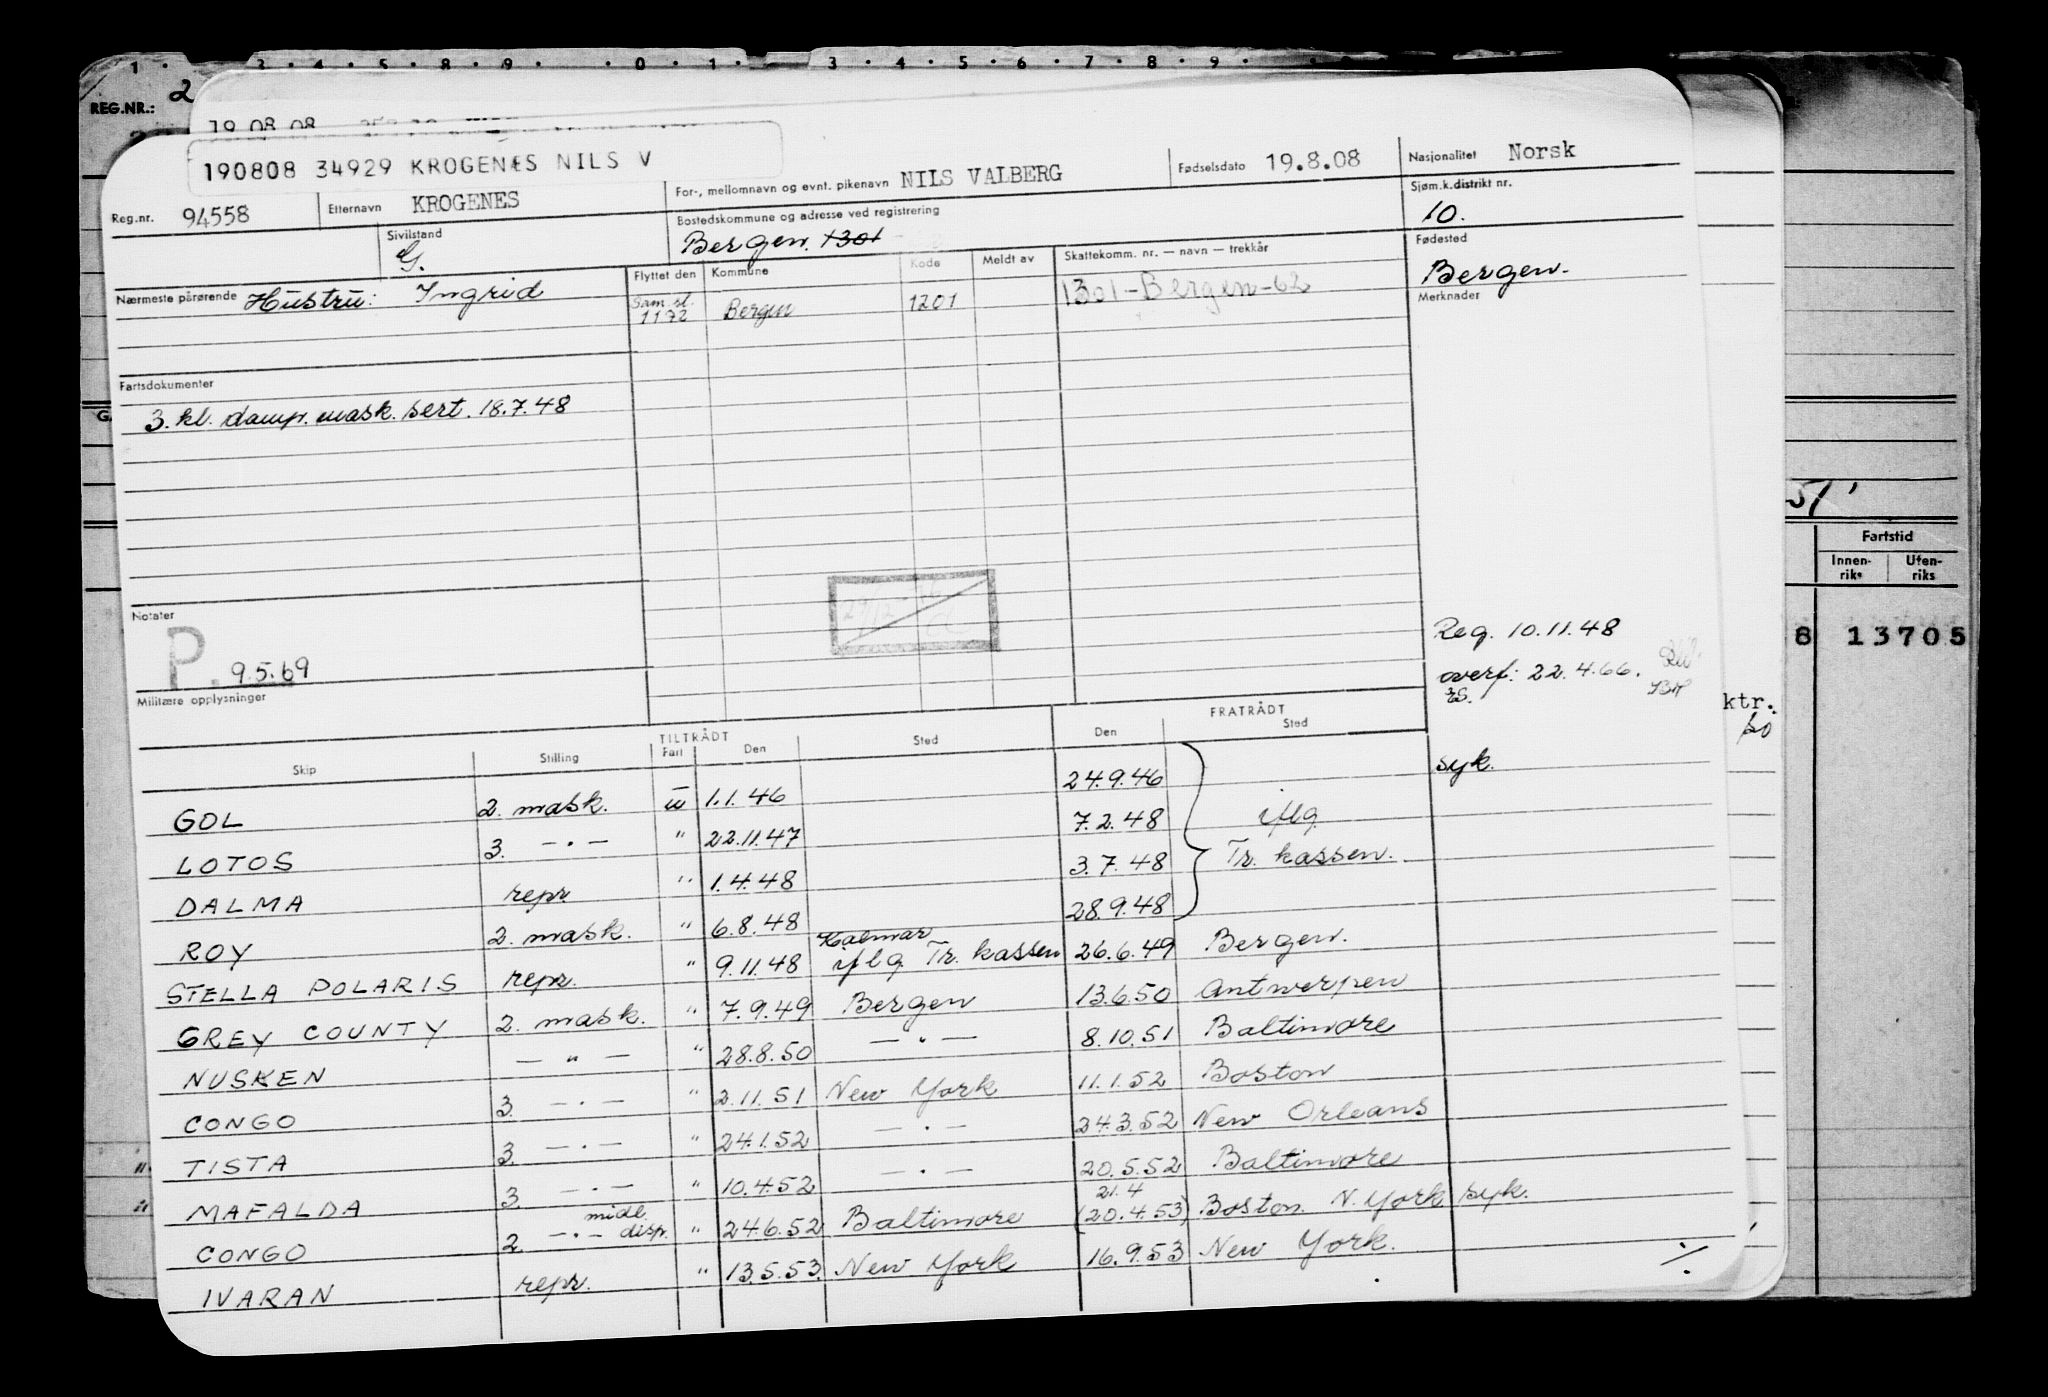 1 . 3 . 4 . 5 . 8 . 9 . 0 . 1 . 3 . 4 . 5 . 6 . 7 . 8 . 9 .
REG.NR.: 2
19 08 08
190808 34929 KROGENÆS NILS V
Reg.nr. 94558 Etternavn KROGENES For-, mellomnavn og evnt. pikenavn NILS VALBERG Fødselsdato 19.8.08 Nasjonalitet Norsk
Sivilstand G. Bostedskommune og adresse ved registrering Bergen. 1301 Sjøm.k.distrikt nr. 10.
Nærmeste pårørende Hustru: Ingrid Flyttet den Kommune Kode Meldt av Skattekomm. nr. — navn — trekkår Fødested Bergen.
Sam.sl. 1172 Bergen 1201 1301-Bergen-62 Merknader
Fartsdokumenter
3. kl. damp. mask. sert. 18.7.48
51'
Fartstid
Innen-riks Uten-riks
8 13705
Notater
P. 9.5.69
Reg. 10.11.48
overf: 22.4.66.
ES.
Militære opplysninger
ktr.
TILTRÅDT FRATRÅDT
Skip Stilling Fart Den Sted Den Sted
GOL 2. mask. u 1.1.46 24.9.46 syk.
LOTOS 3. — " — " 22.11.47 7.2.48 iflg
DALMA repr " 1.4.48 3.7.48 Tr. kassen.
ROY 2. mask. " 6.8.48 28.9.48
STELLA POLARIS repr. " 9.11.48 Kalmar iflg Tr. kassen 26.6.49 Bergen.
GREY COUNTY 2. mask. " 7.9.49 Bergen 13.6.50 Antwerpen
NUSKEN — " — " 28.8.50 — " — 8.10.51 Baltimore
CONGO 3. — " — " 2.11.51 New York 11.1.52 Boston
TISTA 3. — " — " 24.1.52 — " — 24.3.52 New Orleans
MAFALDA 3. — " — " 10.4.52 — " — 20.5.52 Baltimore
CONGO 2. — " — midl. disp. " 24.6.52 Baltimore 21.4 (20.4.53) Boston N. York syk.
IVARAN repr. " 13.5.53. New York 16.9.53 New York.